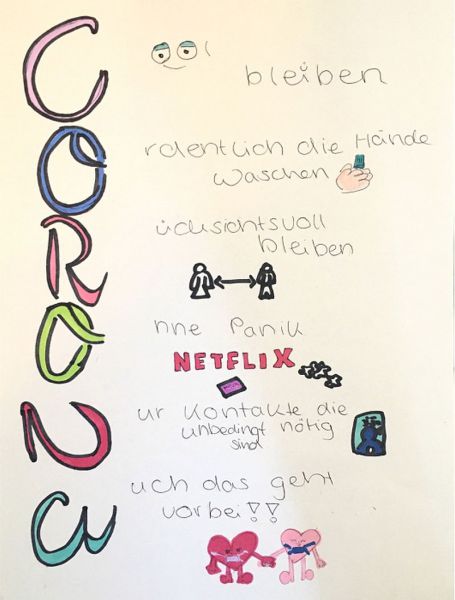 Cool
bleiben
Ordentlich die Hände
waschen
Rücksichtsvoll
bleiben
Ohne Panik
NETFLIX
Nur Kontakte die
unbedingt nötig
sind
Auch das geht
vorbei!!